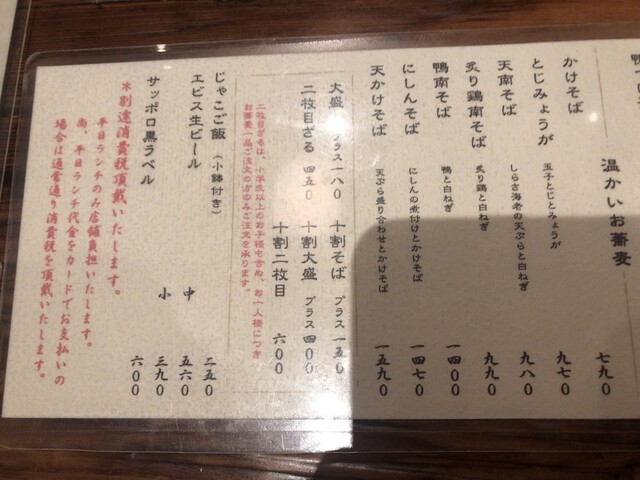 温かいお蕎麦
かけそば 七九〇
とじみょうが 玉子とじとみょうが 九七〇
天南そば しらさ海老の天ぷらと白ねぎ 九八〇
炙り鶏南そば 炙り鶏と白ねぎ 九九〇
鴨南そば 鴨と白ねぎ 一四〇〇
にしんそば にしんの煮付けとかけそば 一四七〇
天かけそば 天ぷら盛り合わせとかけそば 一五九〇
大盛 プラス一八〇 十割そば プラス 一五〇
二枚目ざる 四五〇 十割大盛 プラス 四〇〇
十割二枚目 六〇〇
二枚目ざるは、小学生以上のお子様も含め、お一人様につき
お蕎麦一品ご注文の方のみご注文を承ります。
じゃこご飯 (小鉢付き) 二五〇
エビス生ビール 中 五六〇
小 三九〇
サッポロ黒ラベル 六〇〇
*別途消費税頂戴いたします。
平日ランチのみ店舗負担いたします。
尚、平日ランチ代金をカードでお支払いの
場合は通常通り消費税を頂戴いたします。